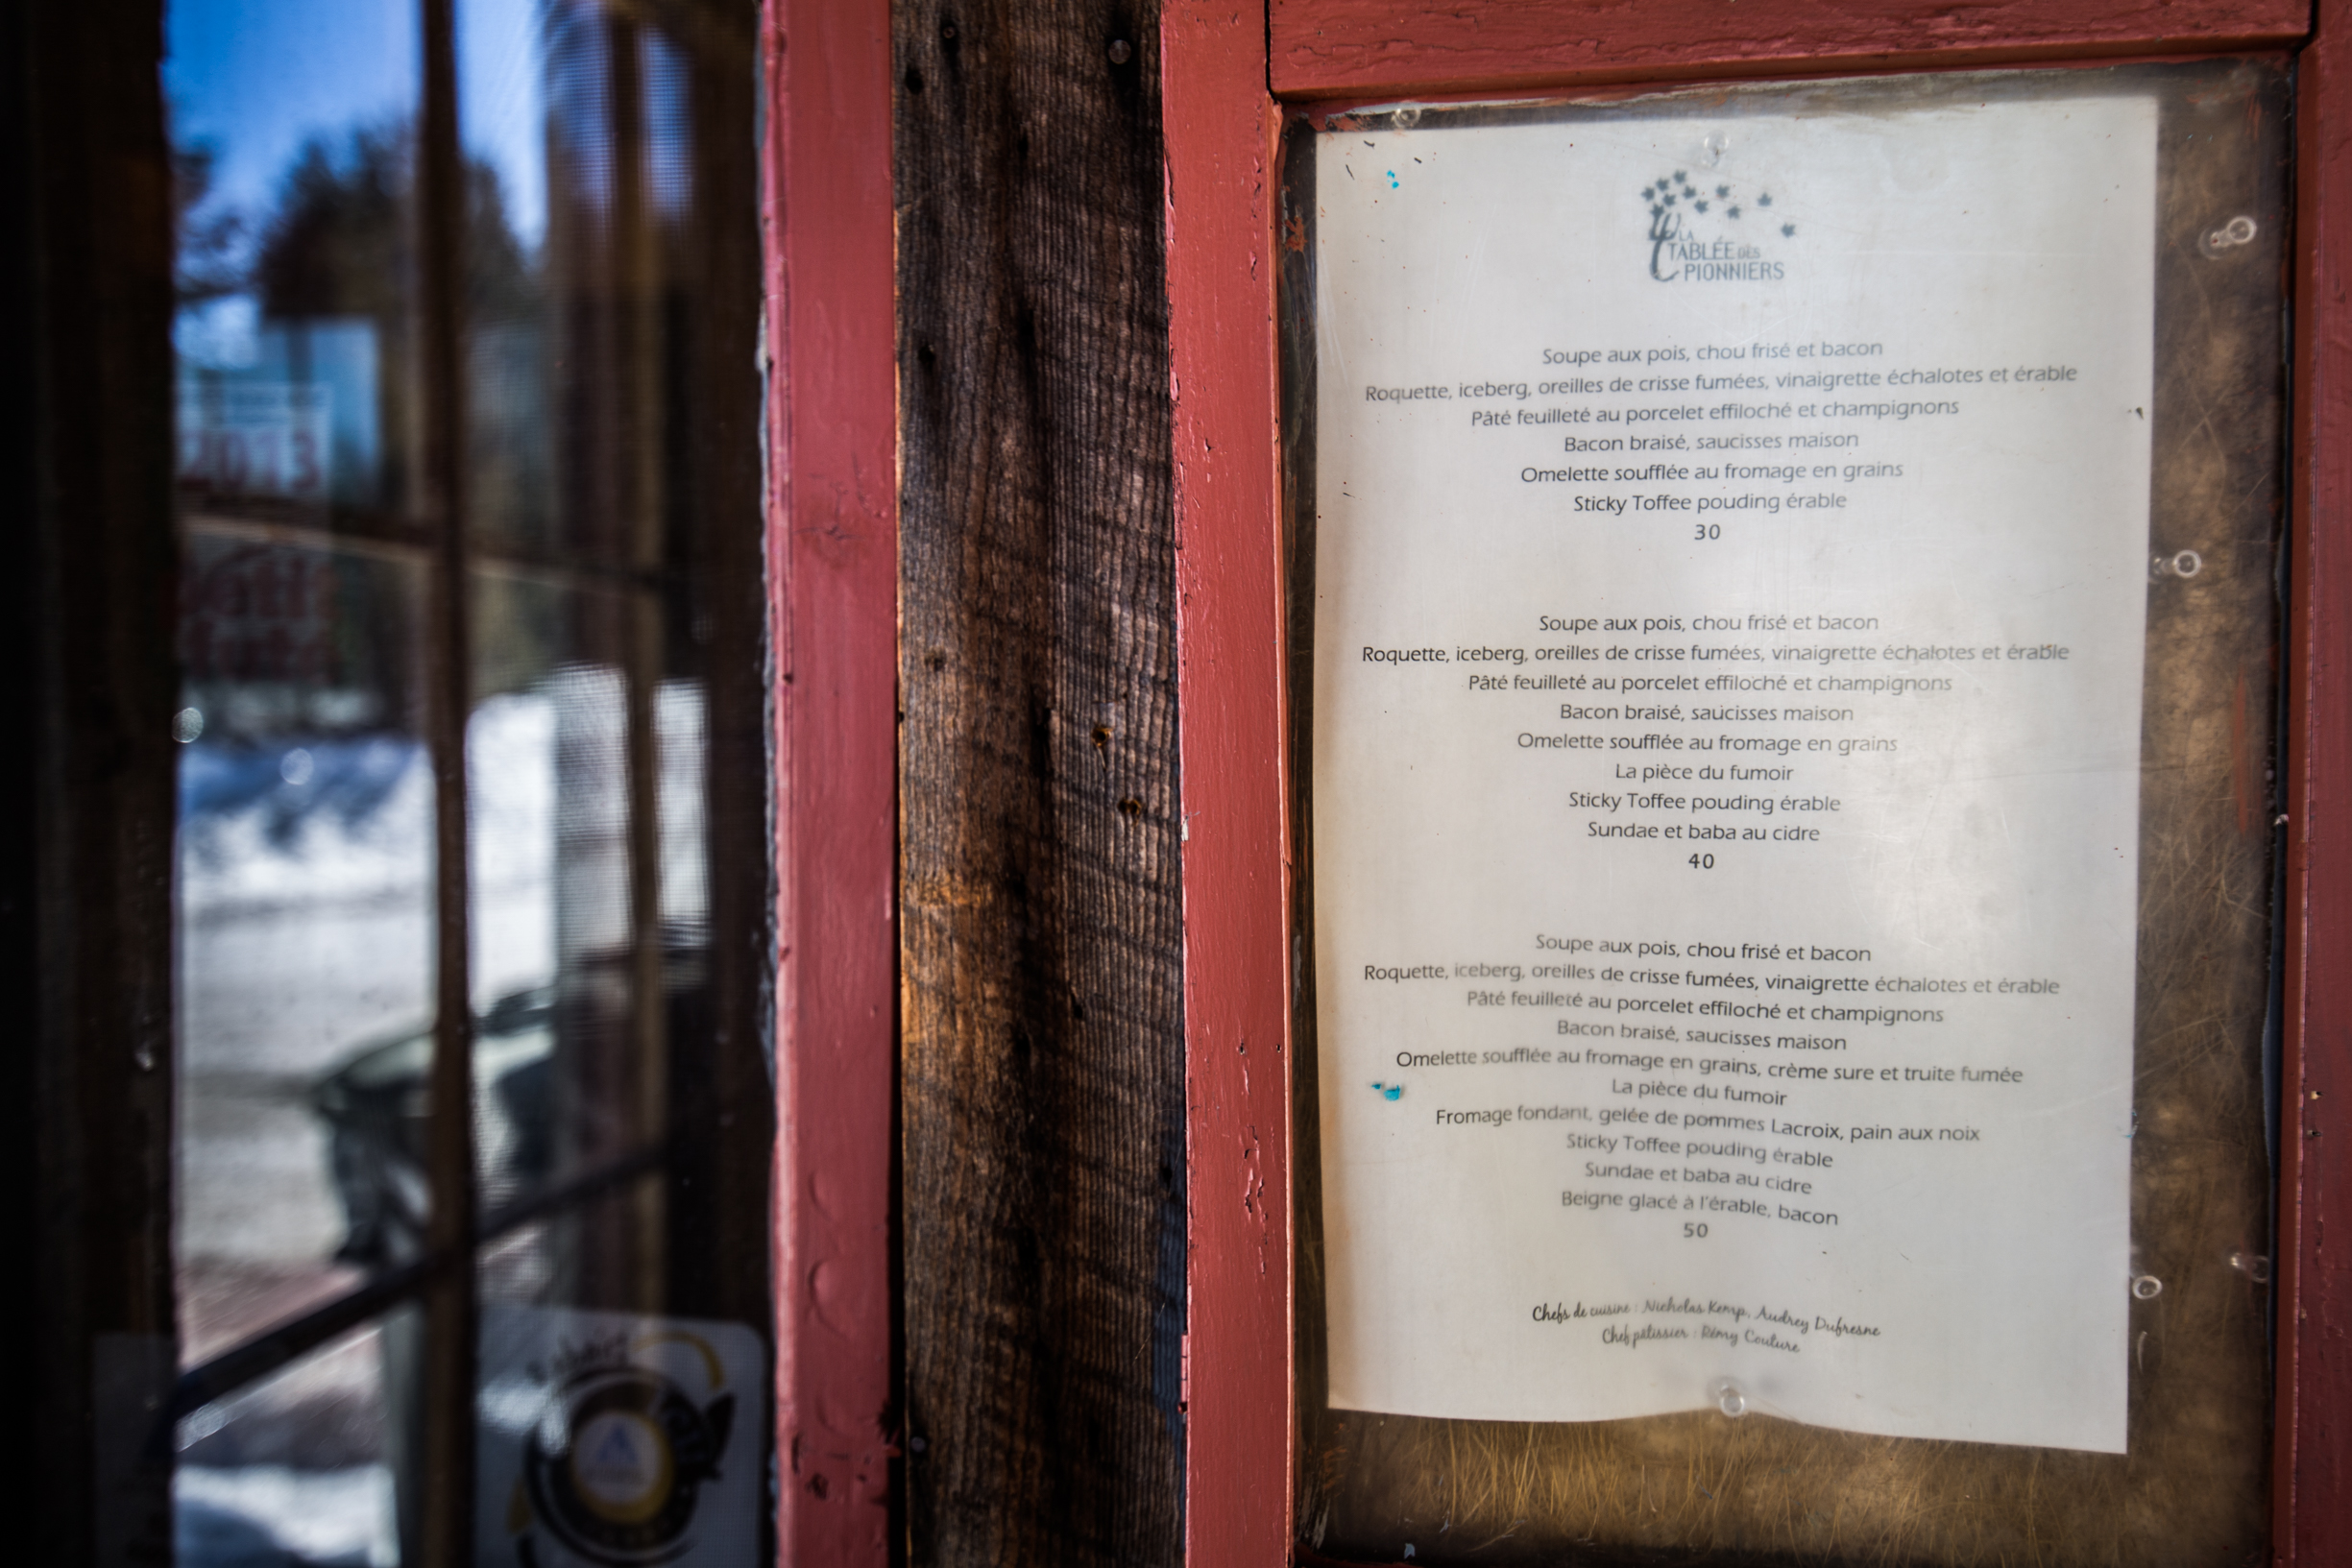 LA
TABLÉE DES
PIONNIERS
Soupe aux pois, chou frisé et bacon
Roquette, iceberg, oreilles de crisse fumées, vinaigrette échalotes et érable
Pâté feuilleté au porcelet effiloché et champignons
Bacon braisé, saucisses maison
Omelette soufflée au fromage en grains
Sticky Toffee pouding érable
30
Soupe aux pois, chou frisé et bacon
Roquette, iceberg, oreilles de crisse fumées, vinaigrette échalotes et érable
Pâté feuilleté au porcelet effiloché et champignons
Bacon braisé, saucisses maison
Omelette soufflée au fromage en grains
La pièce du fumoir
Sticky Toffee pouding érable
Sundae et baba au cidre
40
Soupe aux pois, chou frisé et bacon
Roquette, iceberg, oreilles de crisse fumées, vinaigrette échalotes et érable
Pâté feuilleté au porcelet effiloché et champignons
Bacon braisé, saucisses maison
Omelette soufflée au fromage en grains, crème sure et truite fumée
La pièce du fumoir
Fromage fondant, gelée de pommes Lacroix, pain aux noix
Sticky Toffee pouding érable
Sundae et baba au cidre
Beigne glacé à l'érable, bacon
50
Chefs de cuisine : Nicholas Kemp, Audrey Dufresne
Chef pâtissier : Rémy Couture